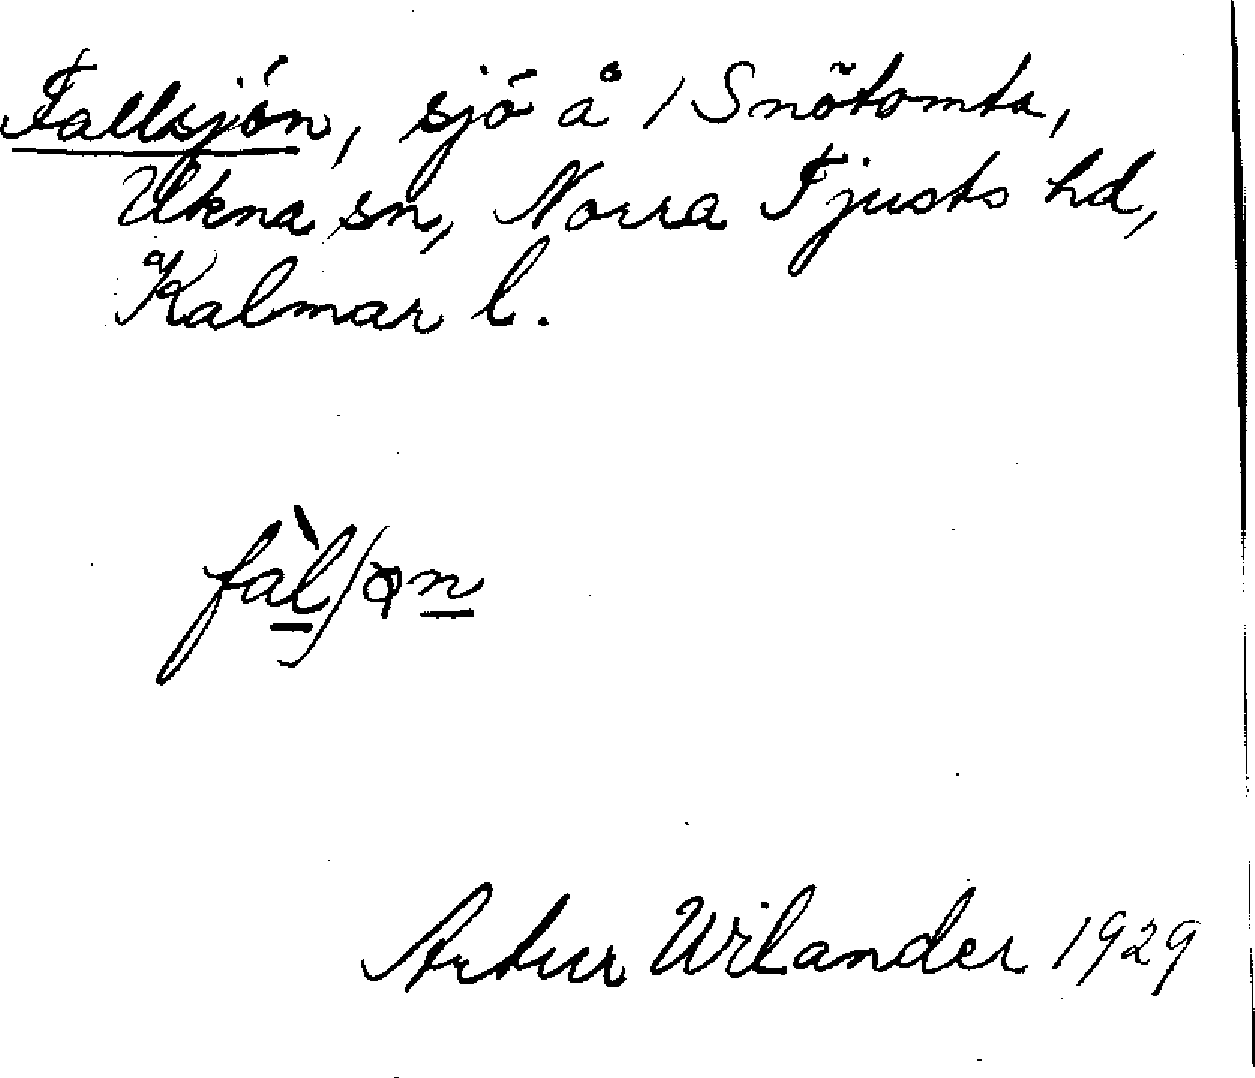 Fallsjön, sjö å 1 Snötomta,
Ukna sn, Norra Tjusts hd,
Kalmar l.
fàlʃǫn
Artur Wilander 1929